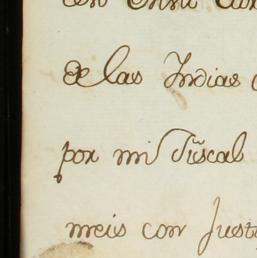 de las Indias
por mi Fiscal
meis con Just